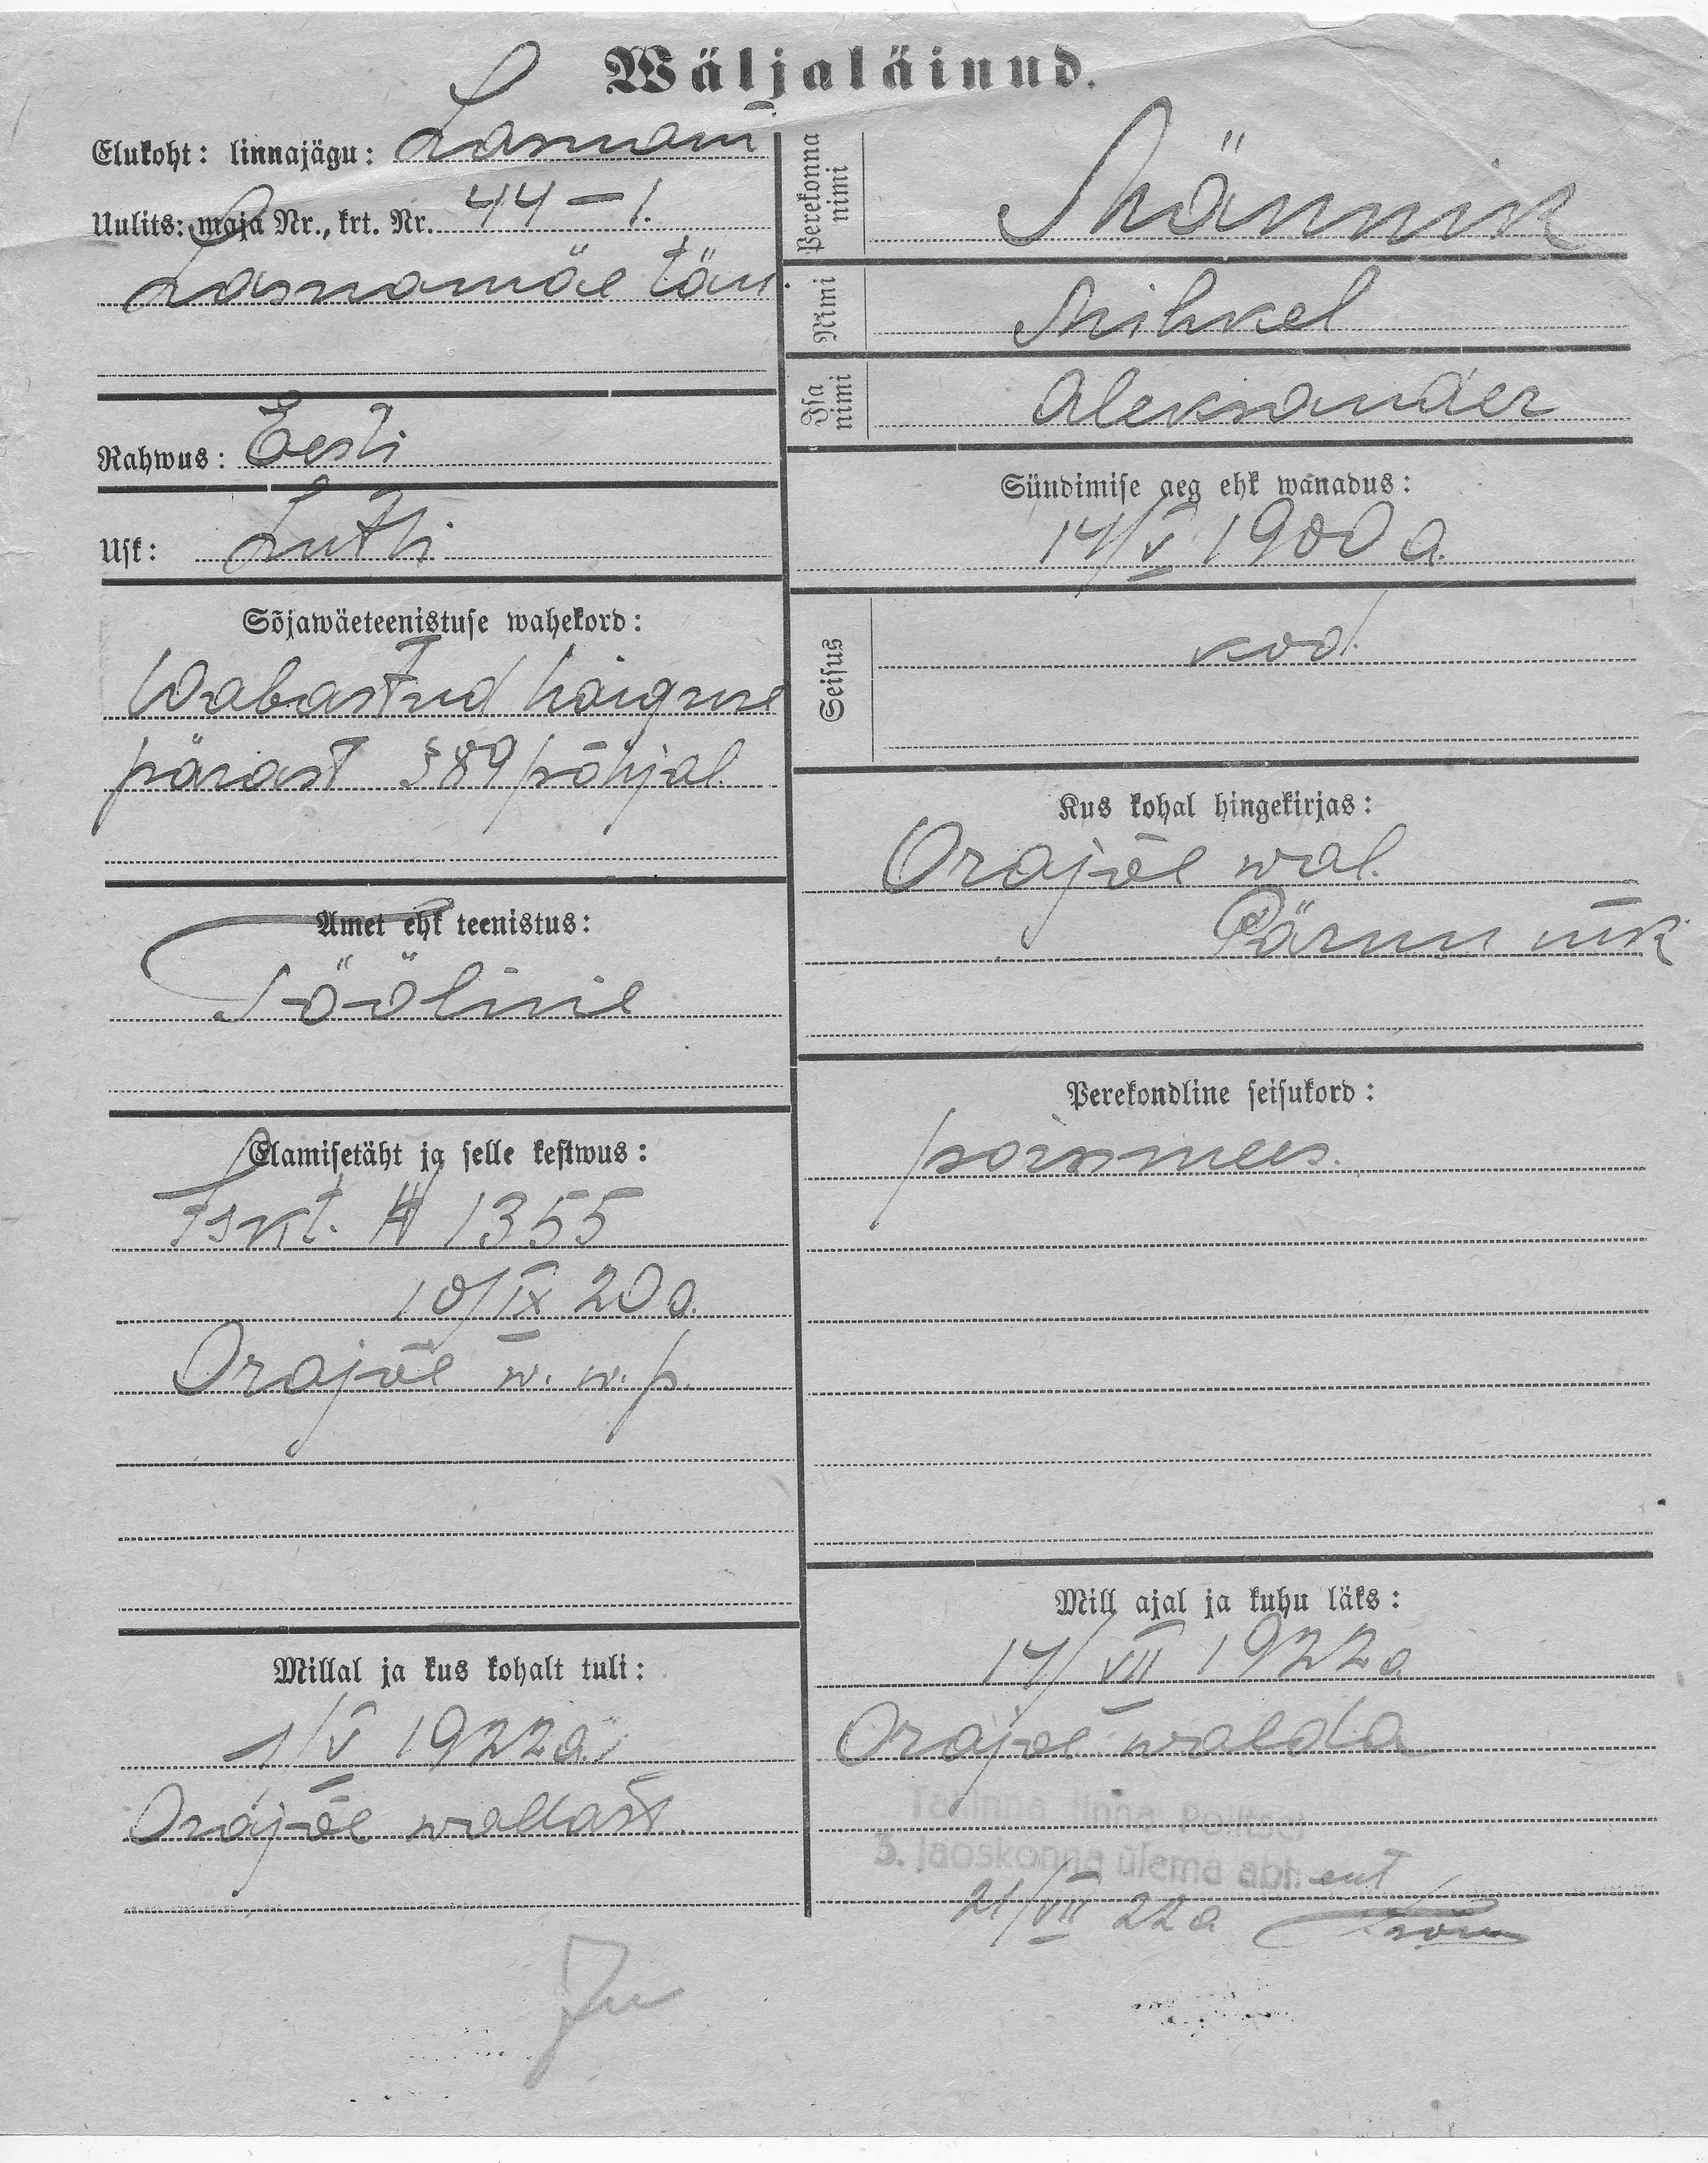 Wäljaläinud.
Elukoht: linnajägu: Lasnam
Uulits: maja Nr., krt. Nr. 44 – 1.
Lasnamäe tän
Rahwus: Eesti
Usk: Lutti
Sõjawäeteenistuse wahekord:
Wabastud haiguse
pärast § 89 põhjal.
Amet ehk teenistus:
Tööline
Elamisetäht ja selle kestwus:
Iskt. № 1355
10/IX 20 a.
Orajõe w. w. p.
Millal ja kus kohalt tuli:
1/V 1922 a.
Orajõe wallast
Perekonna nimi Männik
Nimi Mihkel
Isa nimi Aleksander
Sündimise aeg ehk wanadus:
14/V 1900 a.
Seisus kod.
Kus kohal hingekirjas:
Orajõe wal.
Pärnu mk
Perekondline seisukord:
poismees.
Mill ajal ja kuhu läks:
17/VII 1922 a
Orajõe walda
Tallinna linna Politsei
3. jaoskonna ülema abi: eut
21/VII 22 a